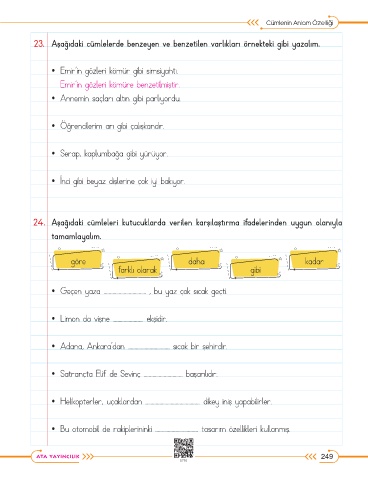 Cümlenin Anlam Özelliği
23. Aşağıdaki cümlelerde benzeyen ve benzetilen varlıkları örnekteki gibi yazalım.
• Emir'in gözleri kömür gibi simsiyahtı.
Emir'in gözleri kömüre benzetilmiştir.
• Annemin saçları altın gibi parlıyordu.
• Öğrencilerim arı gibi çalışkandır.
• Serap, kaplumbağa gibi yürüyor.
• İnci gibi beyaz dişlerine çok iyi bakıyor.
24. Aşağıdaki cümleleri kutucuklarda verilen karşılaştırma ifadelerinden uygun olanıyla
tamamlayalım.
göre farklı olarak daha gibi kadar
• Geçen yaza ........................ , bu yaz çok sıcak geçti.
• Limon da vişne ................ ekşidir.
• Adana, Ankara'dan ....................... sıcak bir şehirdir.
• Satrançta Elif de Sevinç ..................... başarılıdır.
• Helikopterler, uçaklardan .............................. dikey iniş yapabilirler.
• Bu otomobil de rakiplerininki ........................ tasarım özellikleri kullanmış.
ATA YAYINCILIK
249